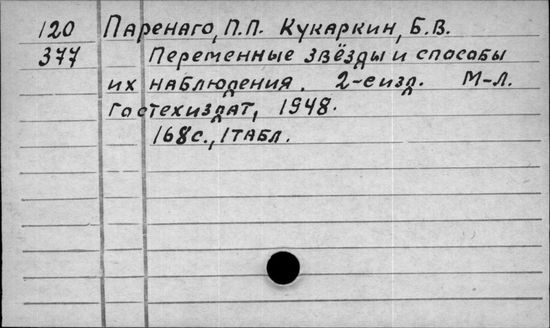 120 Паренаго, П.П. Кукаркин, Б.В.
377 Переменные звёзды и способы
их наблюдения. 2-е изд. М-Л.
Гостехиздат, 1948.
168с., 1 табл.